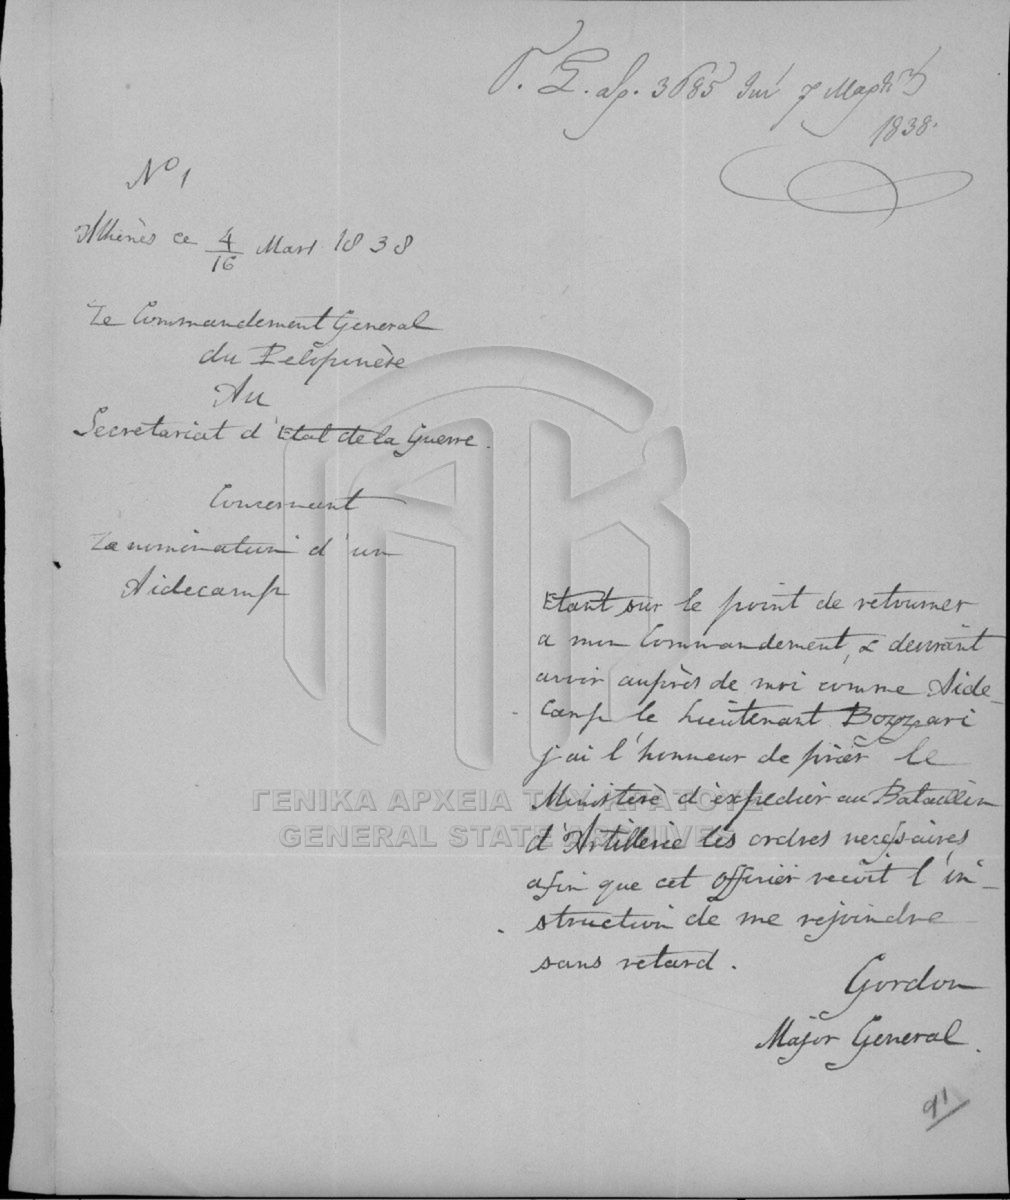 αρ. 3685 7 Μαρτίου
1838.
No 1
Athènes ce 4/16 Mars 1838
Le Commandement General
du Peloponèse
Au
Secretariat d'Etat de la Guerre.
Concernant
La nomination d'un
Aidecamp
Etant sur le point de retourner
a mon Commandement, & devrant
avoir auprès de moi comme Aide-
Camp le Lieutenant Bozzari
j'ai l'honneur de prièr le
Ministère d'expedier au Bataillon
d'Artillerie les ordres necessaires
afin que cet officièr recoit l'in-
struction de me rejoindre
sans retard.
Gordon
Major General.
91
ΓΕΝΙΚΑ ΑΡΧΕΙΑ ΤΟΥ ΚΡΑΤΟΥΣ
GENERAL STATE ARCHIVES